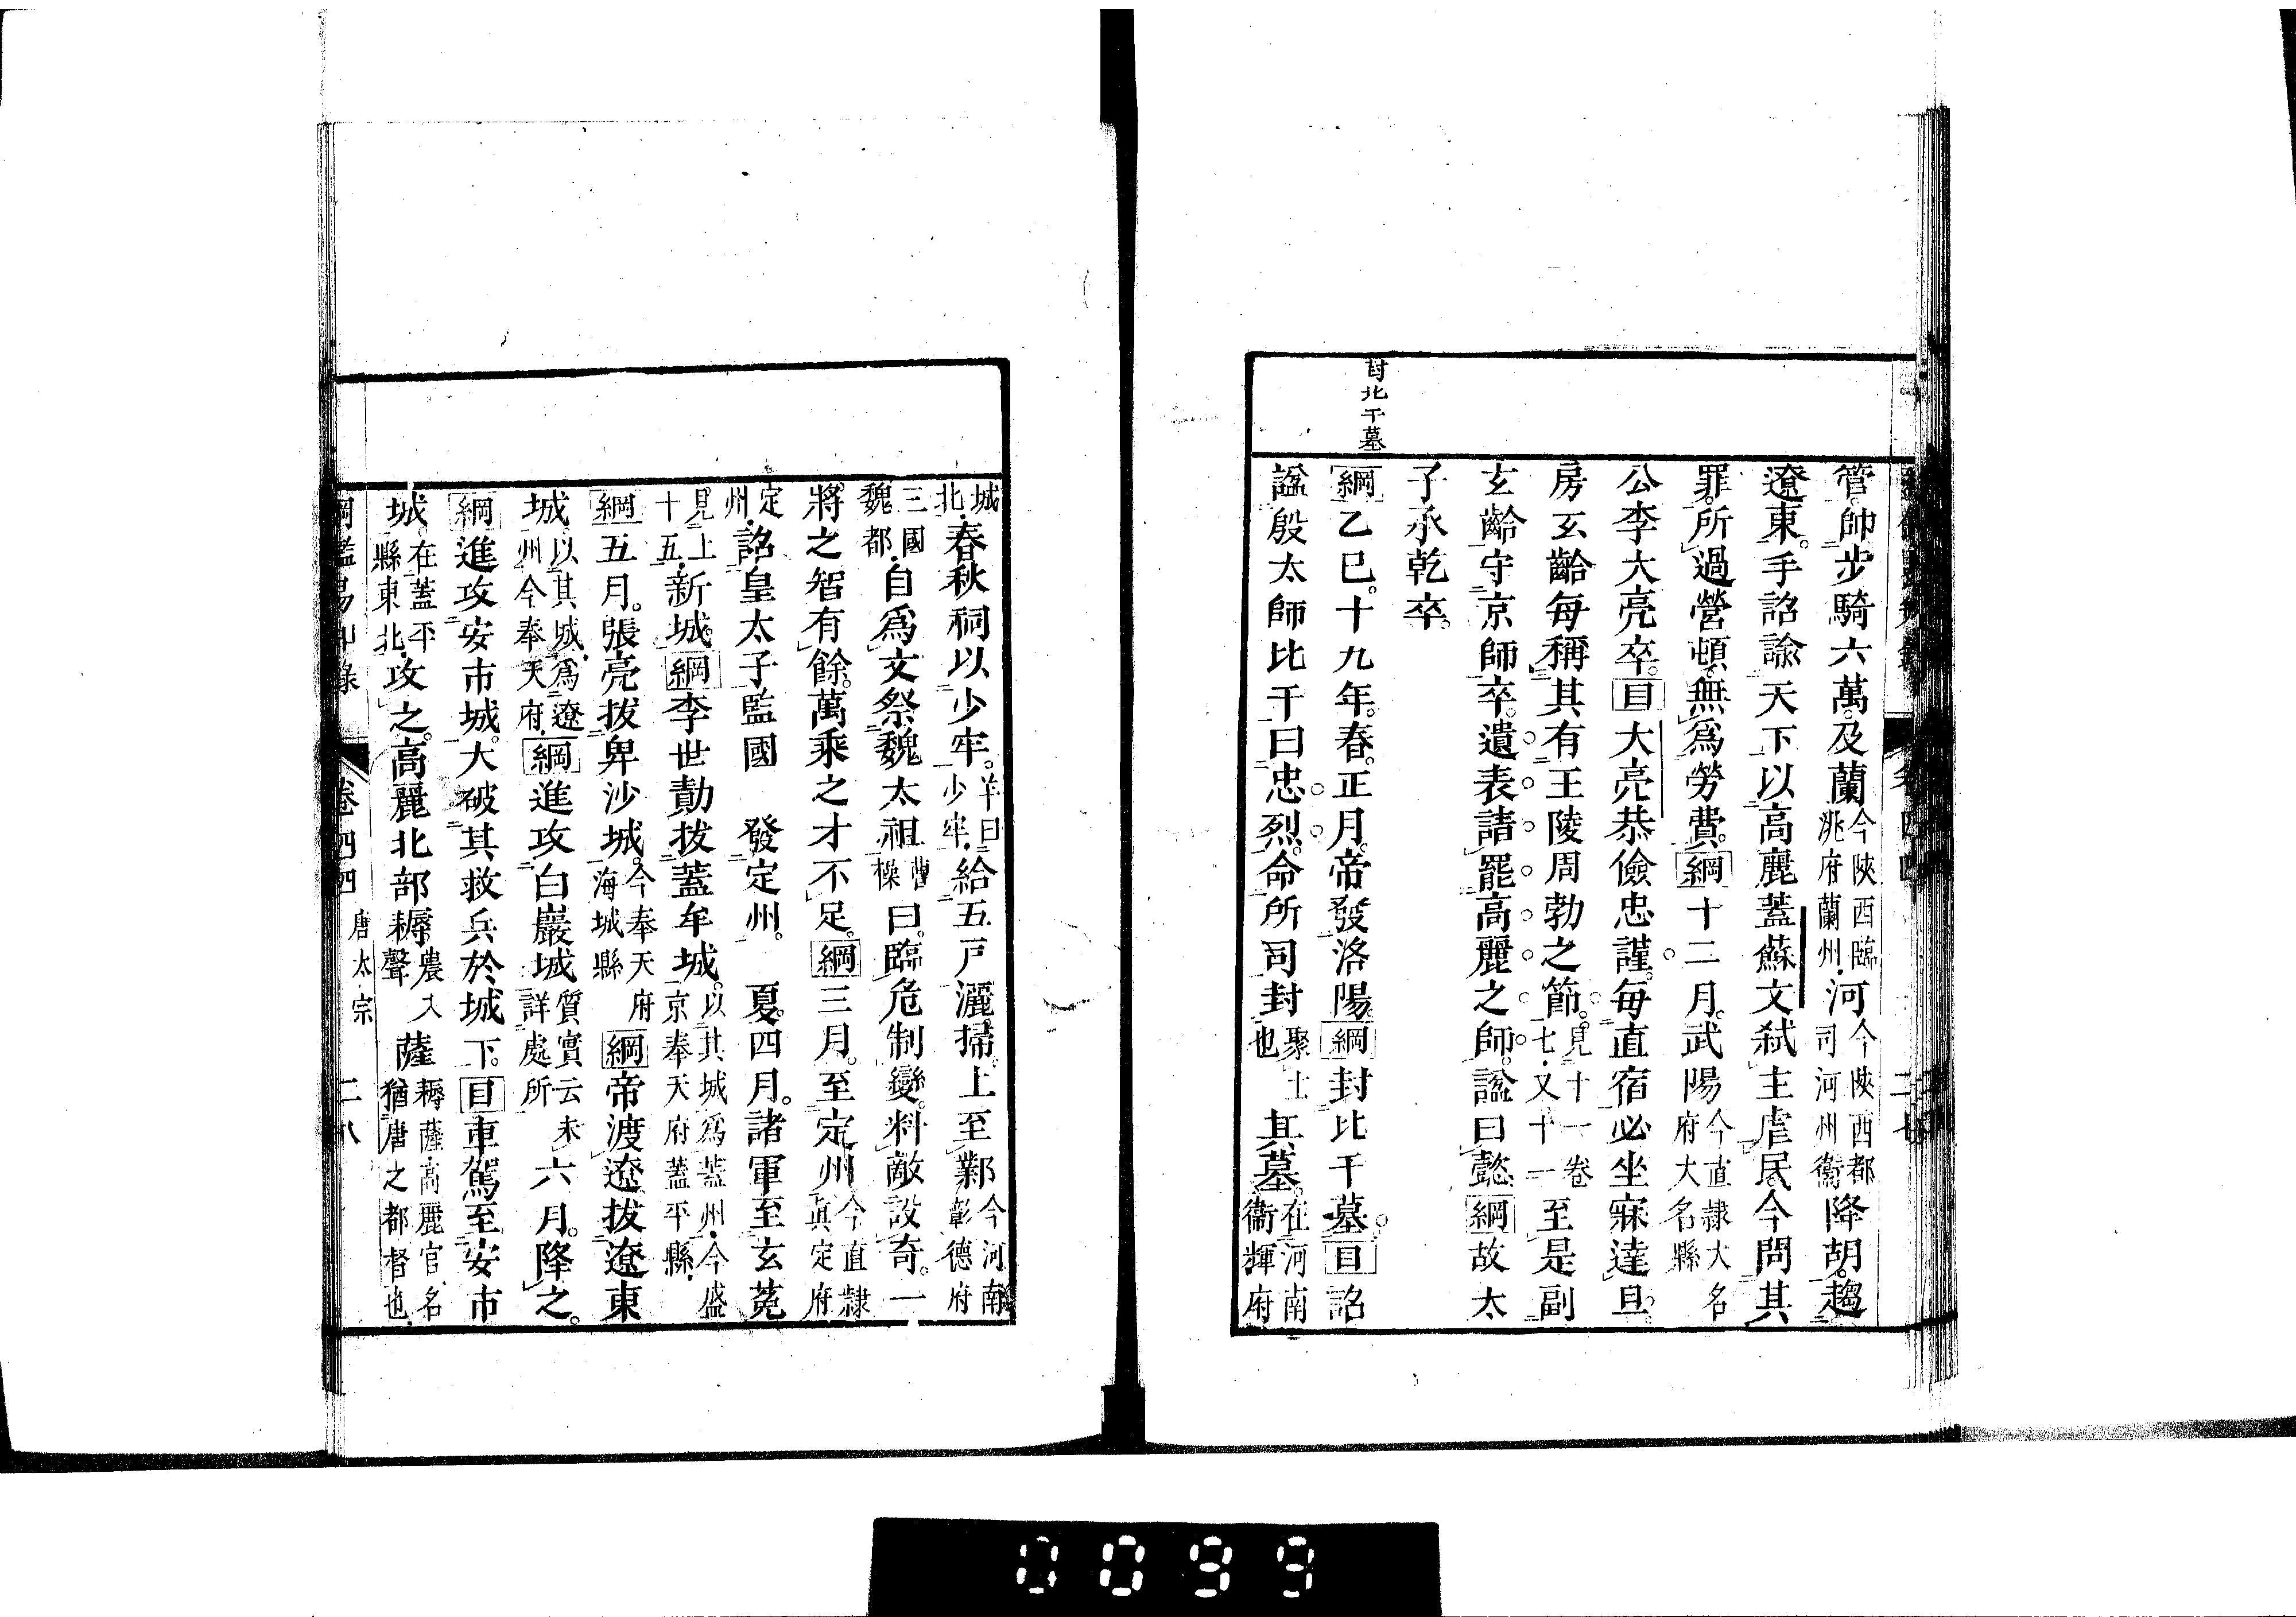 封比干墓
管帥步騎六萬及蘭今陝西臨洮府蘭州河今陝西都司河州衞降胡趨
遼東手詔諭天下以高麗蓋蘇文弑主虐民今問其
罪所過營頓無爲勞費綱十二月武陽今直隸大名府大名縣
公李大亮卒目大亮恭儉忠謹每直宿必坐寐達旦
房玄齡每稱其有王陵周勃之節見十一卷七又十一至是副
玄齡守京師卒遺表請罷高麗之師諡曰懿綱故太
子承乾卒
綱乙巳十九年春正月帝發洛陽綱封比干墓目詔
諡殷太師比干曰忠烈命所司封聚土也其墓在河南衞輝府
城北春秋祠以少牢羊曰少牢給五戸灑掃上至鄴今河南彰德府
三國魏都自爲文祭魏太祖曹操曰臨危制變料敵設奇一
將之智有餘萬乘之才不足綱三月至定州今直隸眞定府
定州詔皇太子監國　發定州　夏四月諸軍至玄菟
見上十五新城綱李世勣拔蓋牟城以其城爲蓋州今盛京奉天府蓋平縣
綱五月張亮拔卑沙城今奉天府海城縣綱帝渡遼拔遼東
城以其城爲遼州今奉天府綱進攻白巖城質實云未詳處所六月降之
綱進攻安市城大破其救兵於城下目車駕至安市
城在蓋平縣東北攻之高麗北部耨農入聲薩耨薩高麗官名猶唐之都督也
綱鑑易知錄　卷四四　唐太宗　二八
0099